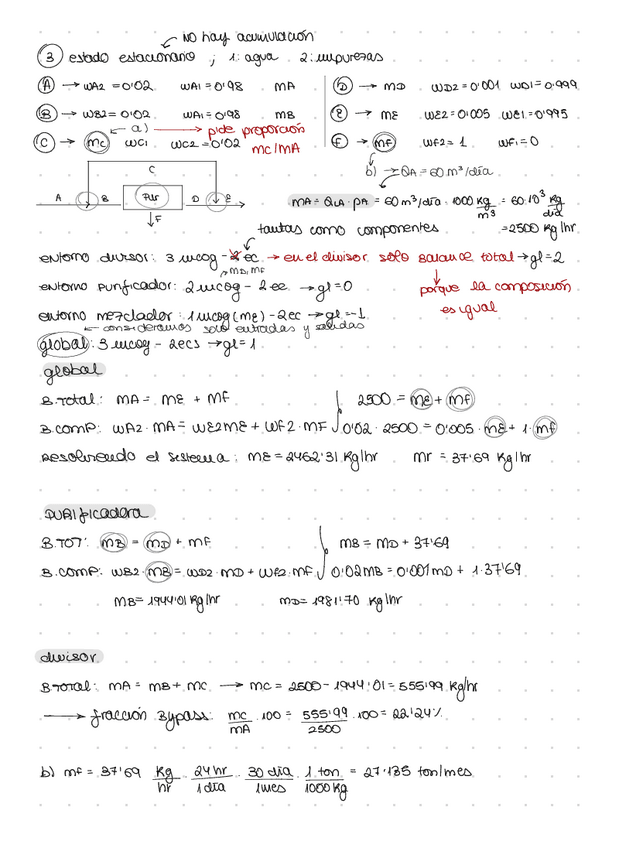 NO hay acumulación
③ estado estacionario ; 1: agua 2: impurezas
Ⓐ → wA2 = 0'02 wA1 = 0'98 mA
Ⓓ → mD wD2 = 0'001 wD1 = 0'999
Ⓑ → wB2 = 0'02 wA1 = 0'98 mB
Ⓔ → mE wE2 = 0'005 wE1 = 0'995
a) → pide proporción
Ⓒ → mC wC1 wC2 = 0'02 mC/mA
Ⓕ → mF wF2 = 1 wF1 = 0
b) → QA = 60 m³/día
C
A B Pur D E
F
mA = QA · ρA = 60 m³/día · 1000 kg/m³ = 60·10³ kg/día
= 2500 kg/hr
tantas como componentes
entorno divisor: 3 incog - 2 ec → en el divisor sólo balance total → gl = 2
mD, mF
entorno purificador: 2 incog - 2 ec → gl = 0
porque la composición
es igual
entorno mezclador: 1 incog (mE) - 2 ec → gl = -1
← consideramos solo entradas y salidas
global: 3 incog - 2 ecs → gl = 1
global
B. Total: mA = mE + mF 2500 = mE + mF
B. comp: wA2 · mA = wE2 mE + wF2 · mF 0'02 · 2500 = 0'005 · mE + 1 · mF
Resolviendo el sistema: mE = 2462'31 kg/hr mF = 37'69 kg/hr
purificadora
B. TOT: mB = mD + mF mB = mD + 37'69
B. comp: wB2 · mB = wD2 · mD + wF2 · mF 0'02 mB = 0'001 mD + 1 · 37'69
mB = 1944'01 kg/hr mD = 1981'70 kg/hr
divisor
B total: mA = mB + mC → mC = 2500 - 1944'01 = 555'99 kg/hr
→ fracción Bypass: mC/mA · 100 = 555'99/2500 · 100 = 22'24%
b) mF = 37'69 kg/hr · 24 hr/1 día · 30 día/1 mes · 1 ton/1000 kg = 27'135 ton/mes